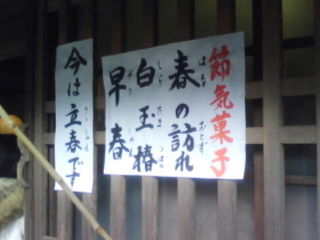 節気菓子
春の訪れ
白玉椿
早春
今は立春です